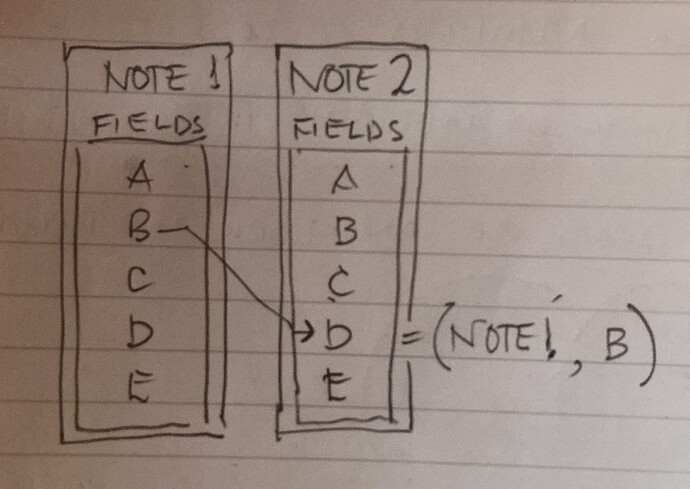 NOTE 1
FIELDS
A
B
C
D
E
NOTE 2
FIELDS
A
B
C
D = (NOTE1, B)
E